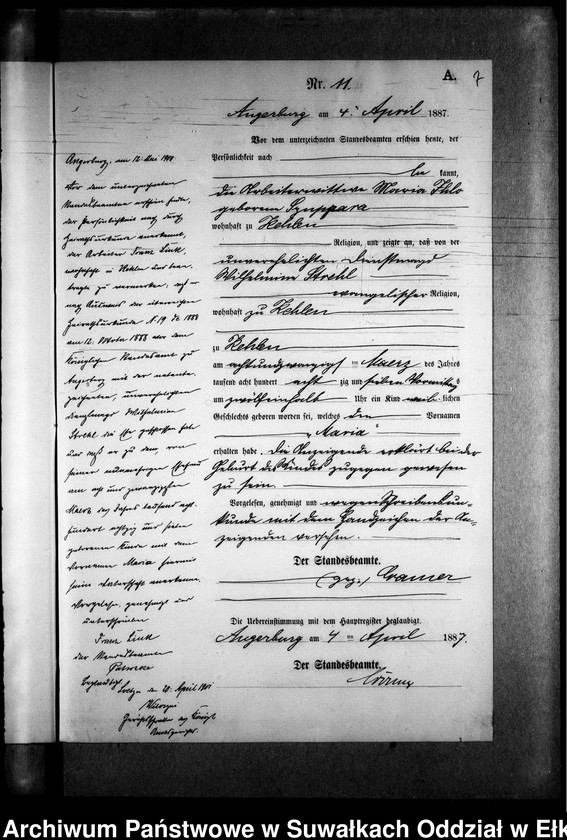 A.
7
Nr. 11.
Angerburg am 4. April 1887.
Vor dem unterzeichneten Standesbeamten erschien heute, der
Persönlichkeit nach
kannt,
die Arbeiterwittwe Maria
geborene
wohnhaft zu Kehlen
Religion, und zeigte an, daß von der
unverehelichten Dienstmagd
Wilhelmine Strehl
evangelischer Religion,
wohnhaft zu Kehlen
zu Kehlen
am achtundzwanzigsten Maerz des Jahres
tausend acht hundert achtzig und sieben Vormittags
um zwölfeinhalb Uhr ein Kind weiblichen
Geschlechts geboren worden sei, welches den Vornamen
„Maria"
erhalten habe. Die Anzeigende erklärt bei der
Geburt des Kindes zugegen gewesen
zu sein.
Vorgelesen, genehmigt und wegen Schreibenkun-
kunde mit dem Handzeichen der An-
zeigenden versehen.
Der Standesbeamte.
(gez.) Cramer
Die Uebereinstimmung mit dem Hauptregister beglaubigt.
Angerburg am 4ten April 1887.
Der Standesbeamte.
Angerburg, am 12. Mai 1900
Vor dem unterzeichneten
Standesbeamten erschien heute,
der Persönlichkeit nach durch
Heiratsurkunde anerkannt,
der Arbeiter Franz Link,
wohnhaft in Kehlen und bean-
tragte zu vermerken, daß er
nach Ausweis der
Heiratsurkunde N. 19 de 1888
am 12. Oktober 1888 vor dem
Königlichen Standesamt zu
Angerburg mit der nebenbe-
zeichneten, unverehelichten
Dienstmagd Wilhelmine
Strehl die Ehe geschlossen habe
und daß er zu dem, von
seiner nunmehrigen Ehefrau
am acht und zwanzigsten
März des Jahres tausend acht-
hundert achtzig und sieben
geborenen Kinde mit dem
Vornamen Maria hiermit
seine Vaterschaft anerkenne.
Vorgelesen, genehmigt und
unterschrieben
Franz Link
der Standesbeamte
Beglaubigt.
Loetzen den 20. April 1901
Archiwum Państwowe w Suwałkach Oddział w Ełk